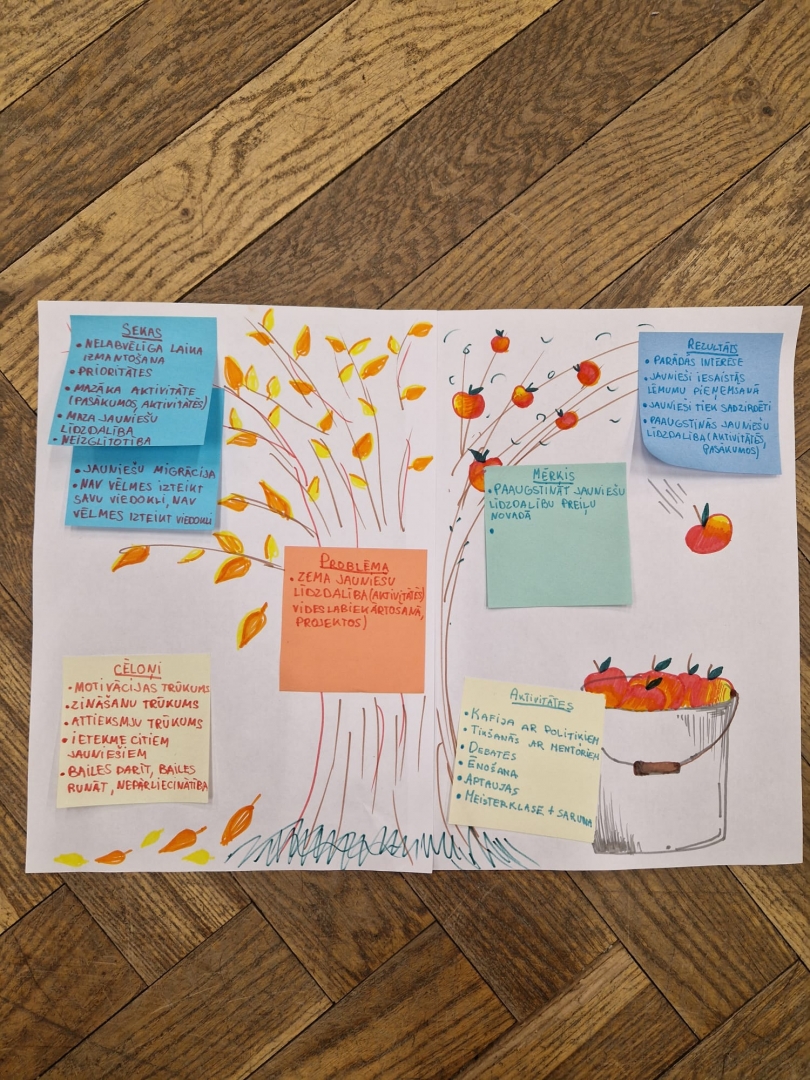 SEKAS
• NELABVĒLĪGA LAIKA
IZMANTOŠANA
• PRIORITĀTES
• MAZĀKA AKTIVITĀTE
(PASĀKUMOS, AKTIVITĀTĒS)
• MAZA JAUNIEŠU
LĪDZDALĪBA
• NEIZGLĪTOTĪBA
• JAUNIEŠU MIGRĀCIJA
• NAV VĒLMES IZTEIKT
SAVU VIEDOKLI, NAV
VĒLMES IZTEIKT VIEDOKLI
PROBLĒMA
• ZEMA JAUNIEŠU
LĪDZDALĪBA (AKTIVITĀTĒS)
VIDES LABIEKĀRTOŠANĀ,
PROJEKTOS)
CĒLOŅI
• MOTIVĀCIJAS TRŪKUMS
• ZINĀŠANU TRŪKUMS
• ATTIEKSMJU TRŪKUMS
• IETEKME CITIEM
JAUNIEŠIEM
• BAILES DARĪT, BAILES
RUNĀT, NEPĀRLIECINĀTĪBA
REZULTĀTS
• PARĀDĀS INTERESE
• JAUNIEŠI IESAISTĀS
LĒMUMU PIEŅEMŠANĀ
• JAUNIEŠI TIEK SADZIRDĒTI
• PAAUGSTINĀS JAUNIEŠU
LĪDZDALĪBA (AKTIVITĀTĒS,
PASĀKUMOS)
MĒRĶIS
• PAAUGSTINĀT JAUNIEŠU
LĪDZDALĪBU PREIĻU
NOVADĀ
•
AKTIVITĀTES
• KAFIJA AR POLITIĶIEM
• TIKŠANĀS AR MENTORIEM
• DEBATES
• ĒNOŠANA
• APTAUJAS
• MEISTERKLASE + SARUNA